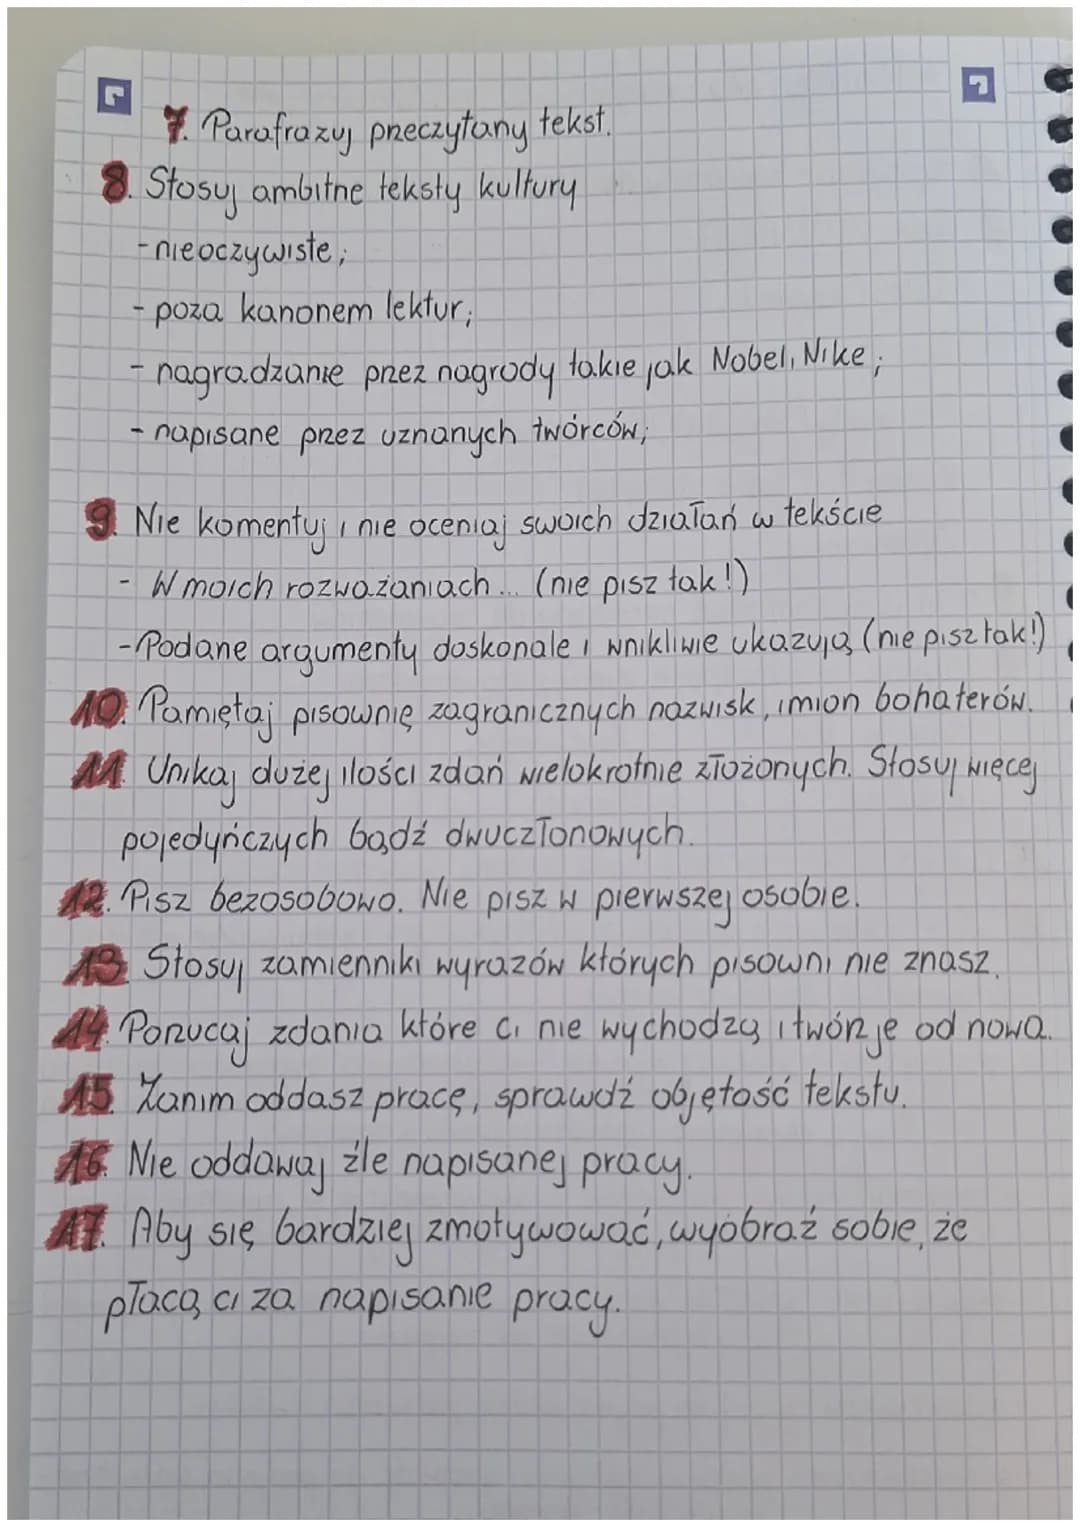 7. Parafrazuj przeczytany tekst.
8. Stosuj ambitne teksty kultury
- nieoczywiste;
- poza kanonem lektur;
- nagradzanie przez nagrody takie jak Nobel, Nike;
- napisane przez uznanych twórców;
9. Nie komentuj i nie oceniaj swoich działań w tekście
- W moich rozważaniach... (nie pisz tak!)
- Podane argumenty doskonale i wnikliwie ukazują (nie pisz tak!)
10. Pamiętaj pisownię zagranicznych nazwisk, imion bohaterów.
11. Unikaj dużej ilości zdań wielokrotnie złożonych. Stosuj więcej
pojedyńczych bądź dwuczłonowych.
12. Pisz bezosobowo. Nie pisz w pierwszej osobie.
13. Stosuj zamienniki wyrazów których pisowni nie znasz.
14. Porzucaj zdania które ci nie wychodzą i twórz je od nowa.
15. Zanim oddasz pracę, sprawdź objętość tekstu.
16. Nie oddawaj źle napisanej pracy.
17. Aby się bardziej zmotywować, wyobraź sobie, że
płacą ci za napisanie pracy.